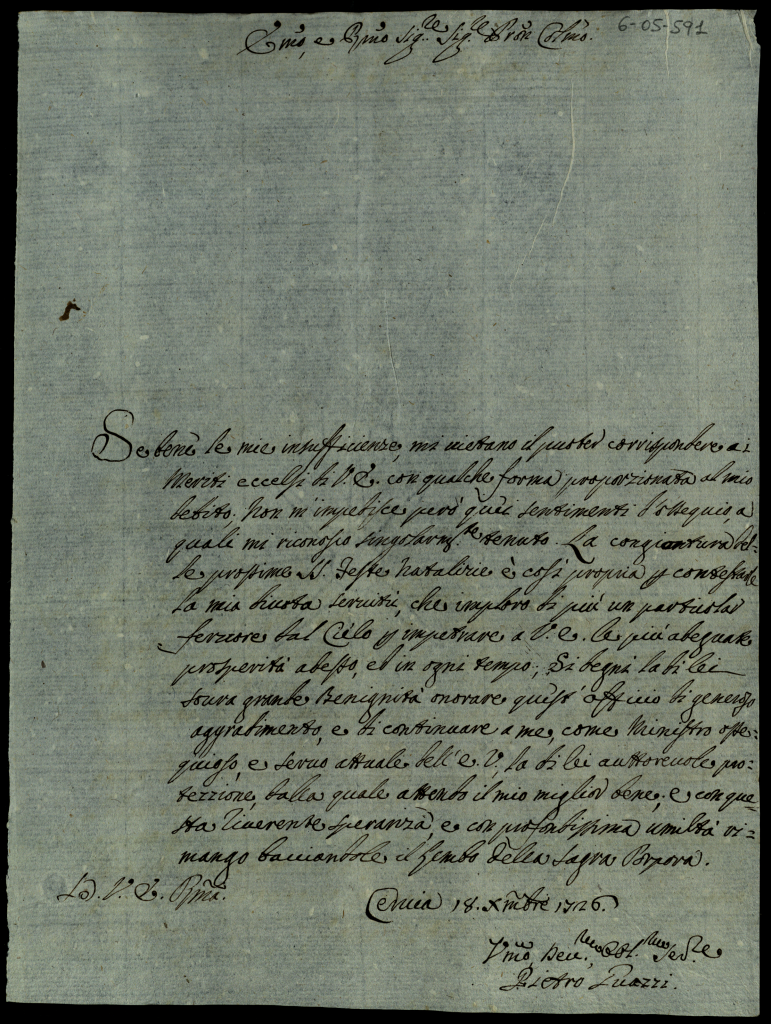 6-05-591
Emo, e Rmo Sigre Sigre Pron Colmo.
Se bene le mie insufficienze, mi vietano il puoter corrispondere a i
Meriti eccelsi di V. E. con qualche forma proporzionata al mio
debito; Non m'impedisce però quei sentimenti d'ossequio, a
quali mi riconosco singolarmte tenuto. La congiontura del-
le prossime SS. Feste Natalizie è così propria p contestarle
la mia divota servitù, che imploro di più un particolar
fervore dal Cielo p impetrare a V. E. le più adeguate
prosperità adesso, ed in ogni tempo; Si degni la di lei
sovra grande Benignità onorare quest' officio di generoso
aggradimento, e di continuare a me, come Ministro osse-
quioso, e servo attuale dell' E. V., la di lei auttorevole pro-
tezzione, dalla quale attendo il mio miglior bene; e con que-
sta riverente speranza, e con profondissima umiltà ri-
mango bacciandole il Lembo della Sagra Porpora.
D. V. E. Rma.
Cervia 18. Xmbre 1726.
Vmo Devmo Serre
Pietro Guazzi.